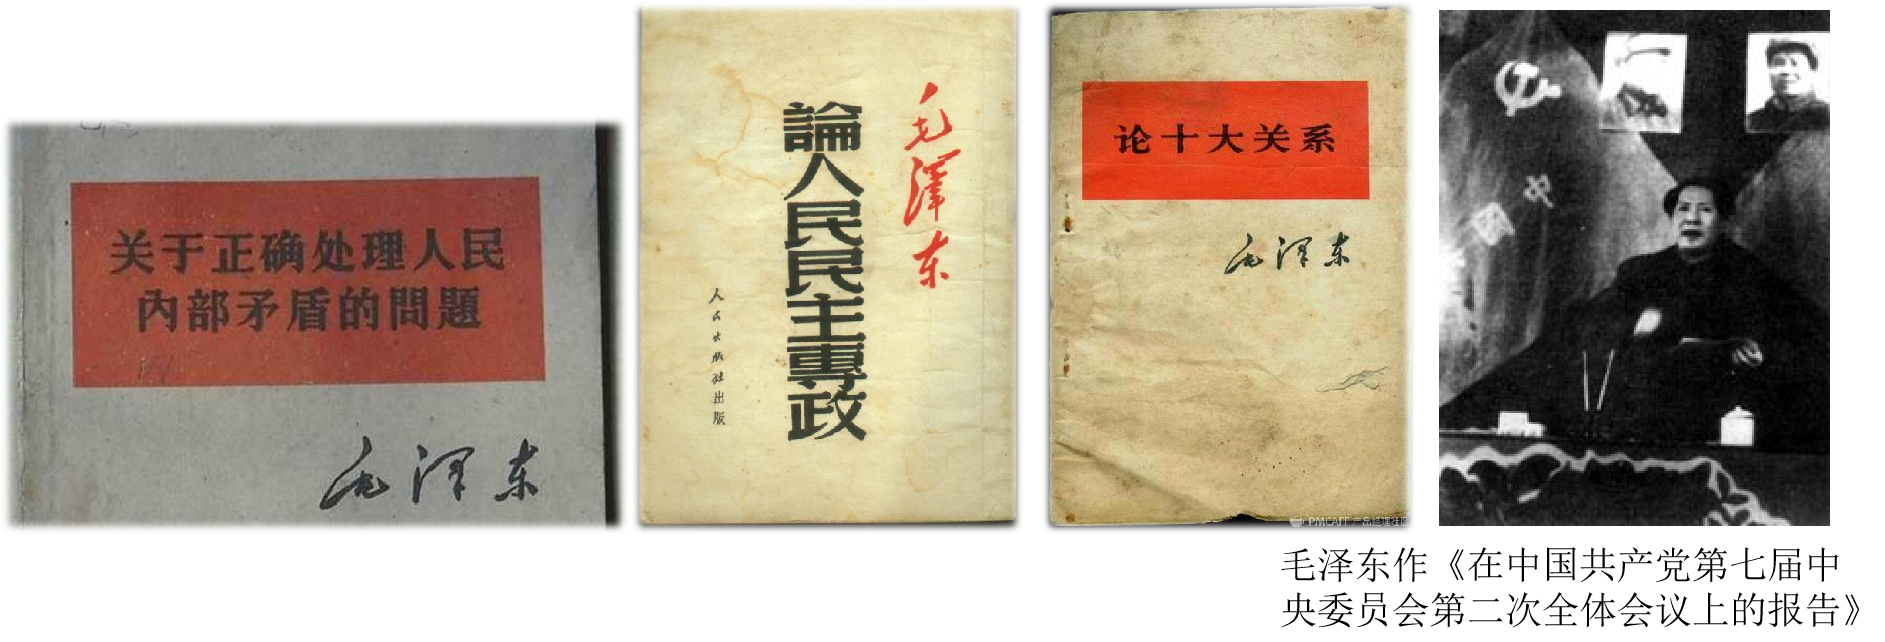 关于正确处理人民
內部矛盾的問題
毛泽东
毛澤东
論人民民主專政
人民出版社出版
论十大关系
毛泽东
PMCAFF 产品经理社区
毛泽东作《在中国共产党第七届中
央委员会第二次全体会议上的报告》